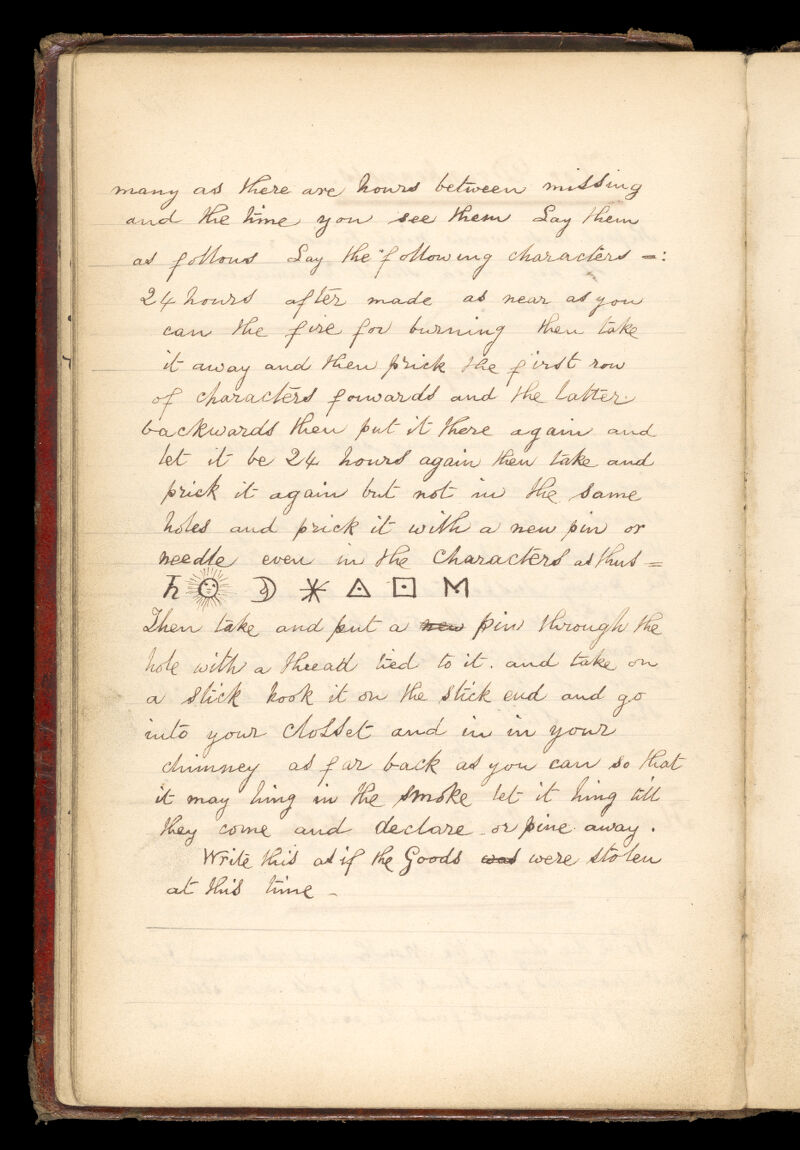 many as there are hours between missing
and the time you see them Lay them
as follows Lay the following characters =:
24 hours after made as near as you
can the fire for burning then take
it away and then prick the first row
of characters forwards and the latter
backwards then put it there again and
let it be 24 hours again then take and
prick it again but not in the same
holes and prick it with a new pin or
needle even in the characters as thus =
♄ ☉ ☽ ✳ △ ⊡ M
Then take and put a new pin through the
hole with a thread tied to it. and take on
a stick hook it on the stick end and go
into your closset and in in your
chimney as far back as you can so that
it may hing in the smoke let it hing till
they come and declare or pine away.
Write this as if the Goods was were stolen
at this time -